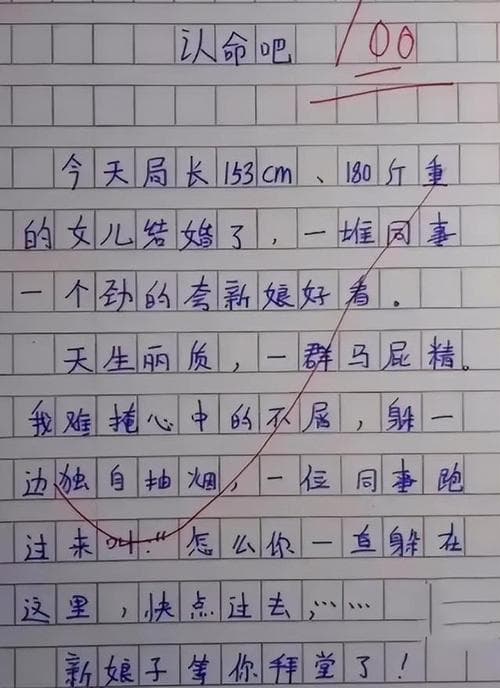 认命吧
100
今天局长153cm、180斤重
的女儿结婚了，一堆同事
一个劲的夸新娘好看。
天生丽质，一群马屁精。
我难掩心中的不屑，躲一
边独自抽烟，一位同事跑
过来叫："怎么你一直躲在
这里，快点过去,……
新娘子等你拜堂了！